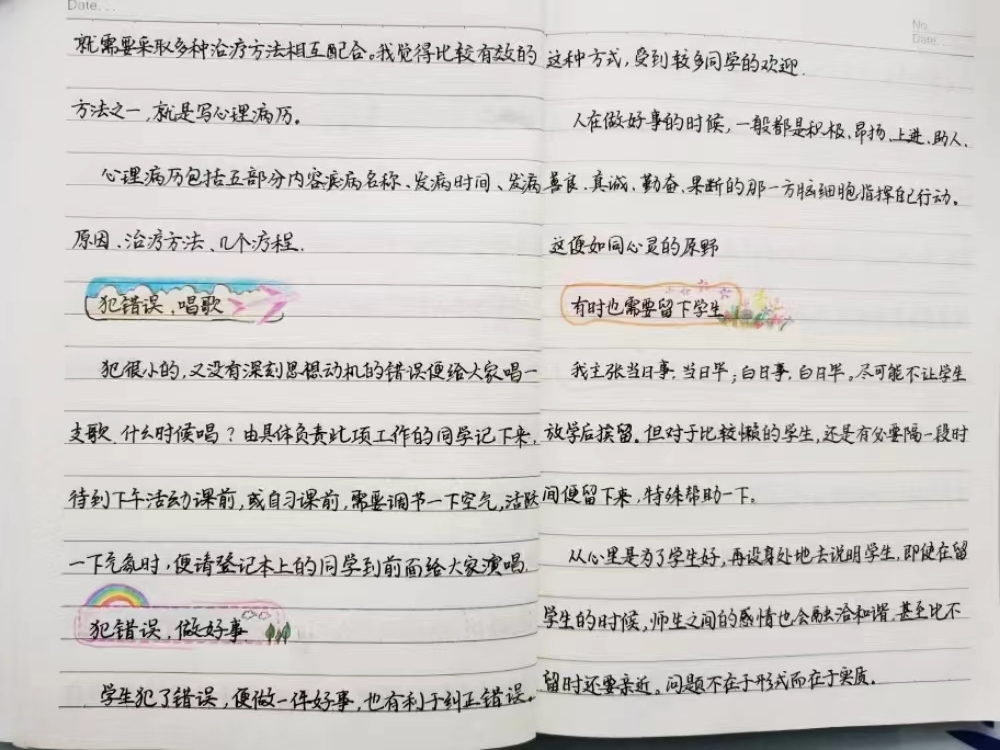 Date...
就需要采取多种治疗方法相互配合。我觉得比较有效的
方法之一,就是写心理病历。
心理病历包括五部分内容疾病名称、发病时间、发病
原因、治疗方法、几个疗程.
犯错误,唱歌
犯很小的,又没有深刻思想动机的错误便给大家唱一
支歌.什么时候唱?由具体负责此项工作的同学记下来,
待到下午活动课前,或自习课前,需要调节一下空气,活跃
一下气氛时,便请登记本上的同学到前面给大家演唱.
犯错误,做好事
学生犯了错误,便做一件好事,也有利于纠正错误。
No.
Date...
这种方式,受到较多同学的欢迎.
人在做好事的时候,一般都是积极、昂扬、上进、助人、
善良、真诚、勤奋、果断的那一方脑细胞指挥自己行动。
这便如同心灵的原野
有时也需要留下学生
我主张当日事,当日毕;白日事,白日毕。尽可能不让学生
放学后挨留。但对于比较懒的学生,还是有必要隔一段时
间便留下来,特殊帮助一下。
从心里是为了学生好,再设身处地去说明学生,即使在留
学生的时候,师生之间的感情也会融洽和谐.甚至比不
留时还要亲近。问题不在于形式而在于实质.